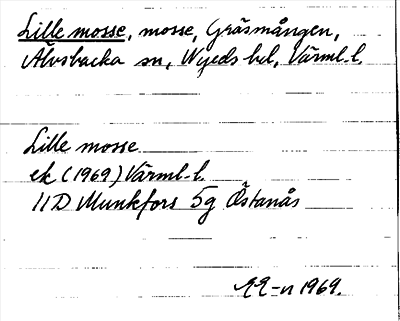 Lille mosse, mosse, Gräsmången,
Älvsbacka sn, Nyeds hd, Värml. l.
Lille mosse
ek (1969) Värml. l.
11D Munkfors 5g Östanås
EE-n 1969.